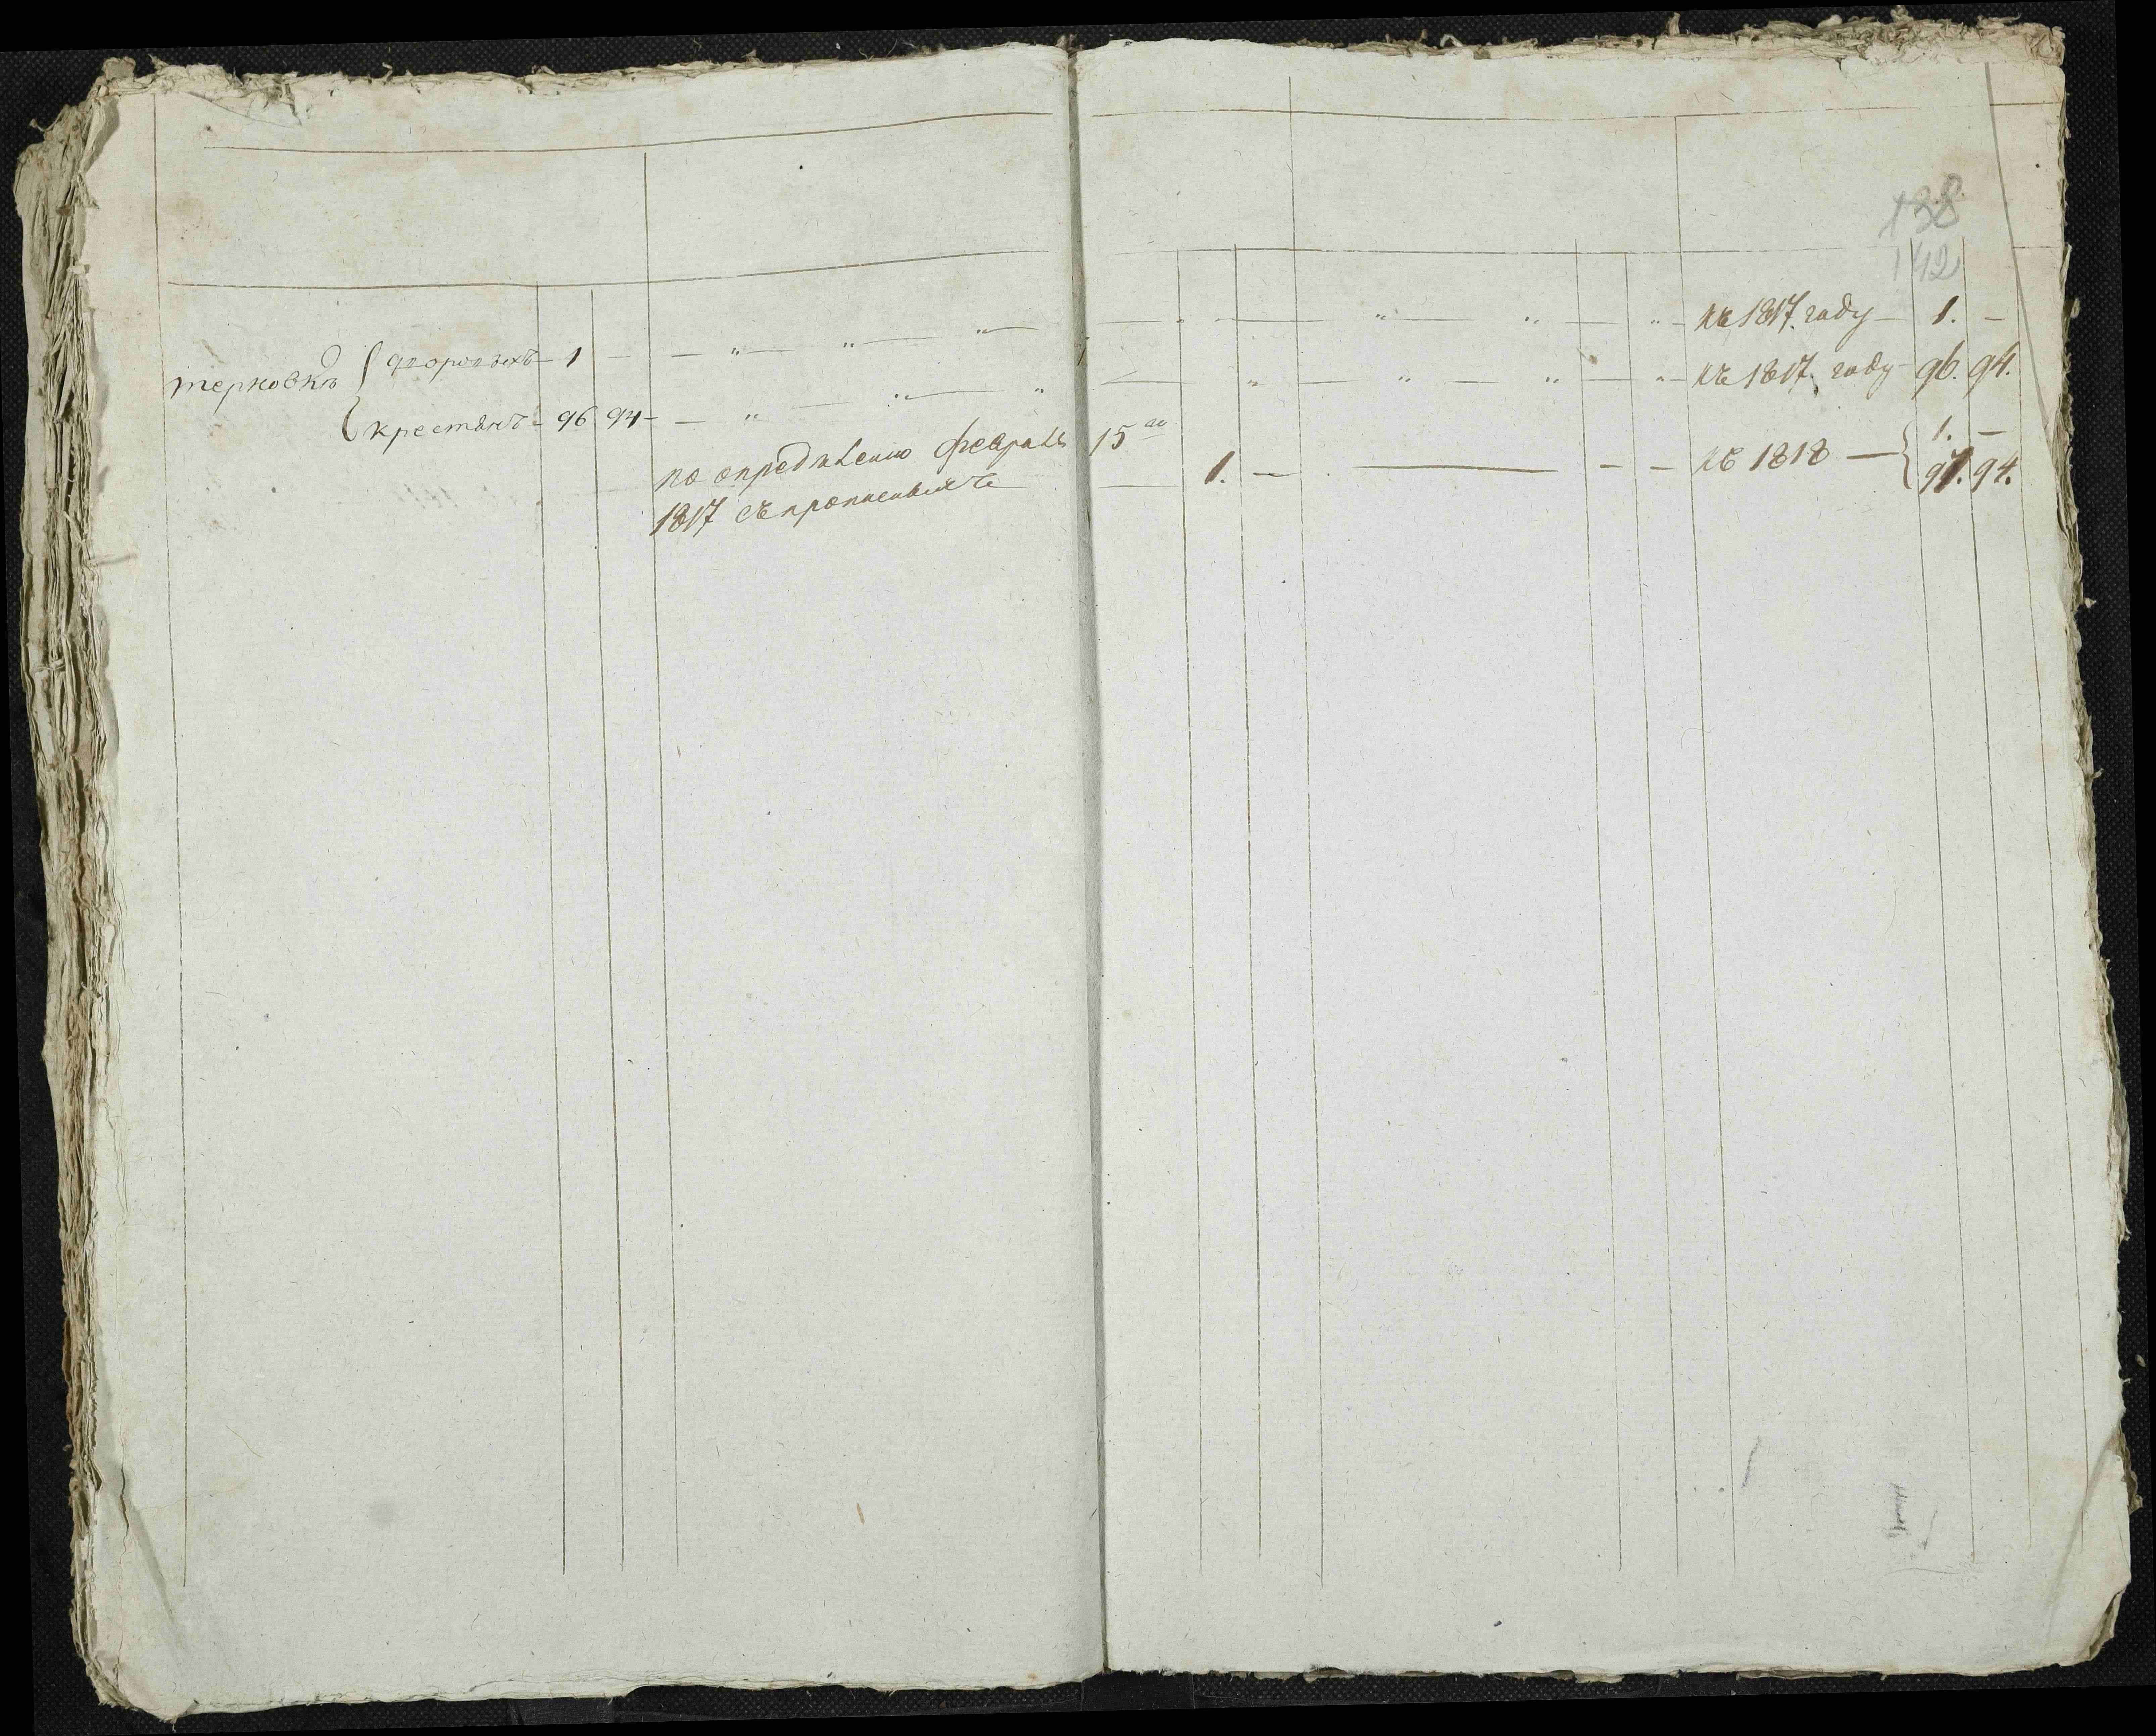 138
142
терковкѣ { дворовыхъ — 1 — — „ — „ — „ — — „ — — „ — „ — „ — къ 1817. году — 1. —
{ крестьянъ — 96 94 — — „ — „ — „ — „ — „ — „ — „ — къ 1817. году 96. 94.
по определению февраля 15го
1817 съ прописныхъ — 1. — — — — къ 1818 — { 1. —
97. 94.